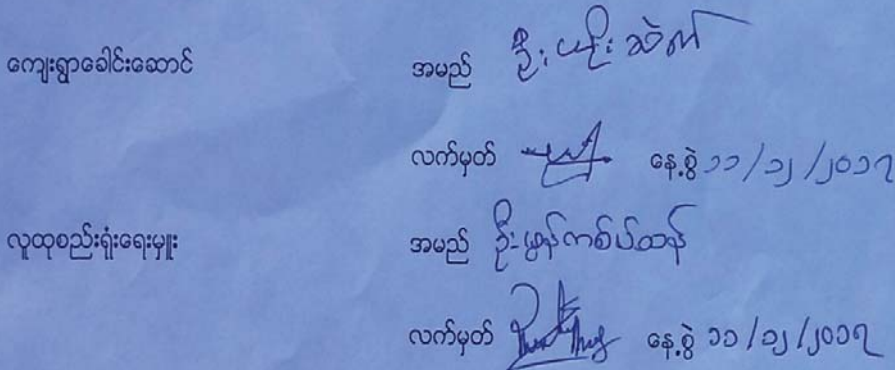 ကျေးရွာခေါင်းဆောင် အမည် ဦး
လက်မှတ် နေ့စွဲ ၁၁/၁၂/၂၀၁၇
လူထုစည်းရုံးရေးမှူး အမည် ဦး
လက်မှတ် နေ့စွဲ ၁၁/၁၂/၂၀၁၇